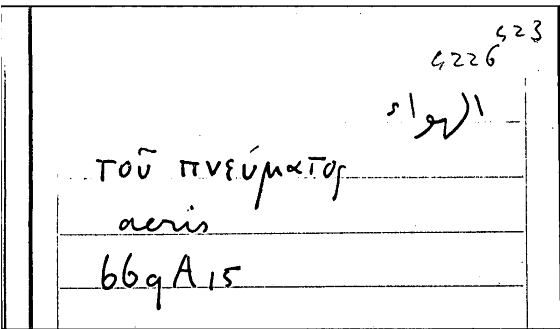 523
5226
الهواء
τοῦ πνεύματος
aeris
669A15